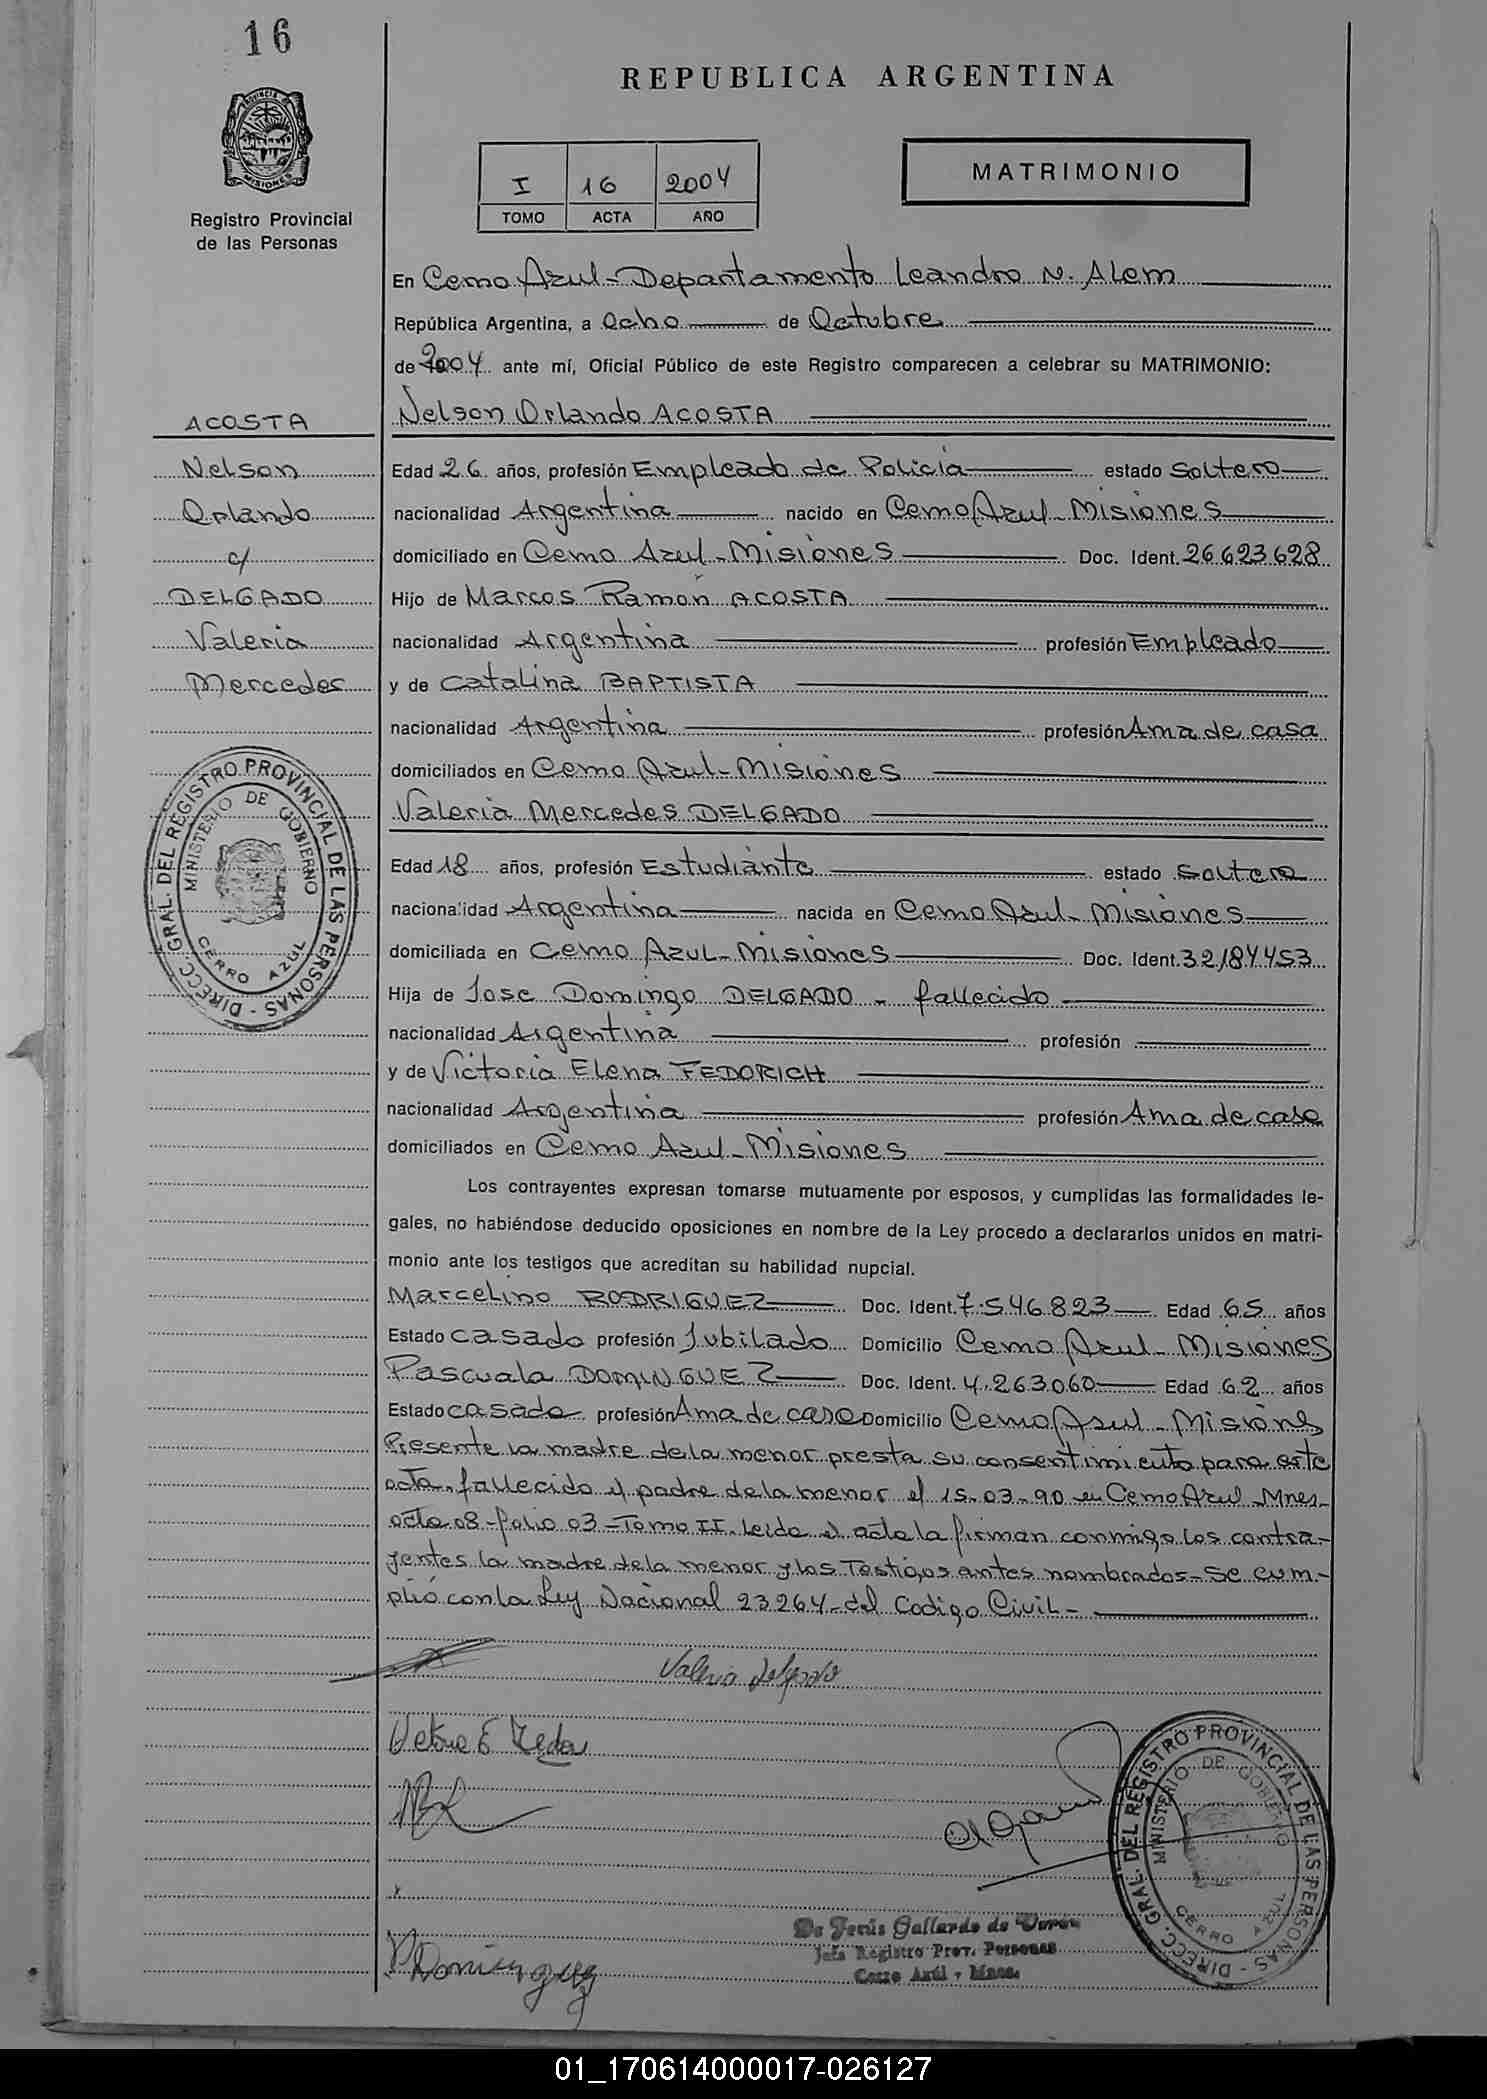 16
REPUBLICA ARGENTINA
PROVINCIA DE
MISIONES
Registro Provincial
de las Personas
I 16 2004
TOMO ACTA AÑO
MATRIMONIO
En Cerro Azul - Departamento Leandro N. Alem
República Argentina, a Ocho de Octubre
de 2004 ante mí, Oficial Público de este Registro comparecen a celebrar su MATRIMONIO:
ACOSTA
Nelson
Orlando
c/
DELGADO
Valeria
Mercedes
Nelson Orlando ACOSTA
Edad 26 años, profesión Empleado de Policía estado Soltero
nacionalidad Argentina nacido en Cerro Azul - Misiones
domiciliado en Cerro Azul - Misiones Doc. Ident. 26.623.628
Hijo de Marcos Ramón ACOSTA
nacionalidad Argentina profesión Empleado
y de Catalina BAPTISTA
nacionalidad Argentina profesión Ama de casa
domiciliados en Cerro Azul - Misiones
Valeria Mercedes DELGADO
Edad 18 años, profesión Estudiante estado Soltera
nacionalidad Argentina nacida en Cerro Azul - Misiones
domiciliada en Cerro Azul - Misiones Doc. Ident. 32.184.453
Hija de Jose Domingo DELGADO - fallecido
nacionalidad Argentina profesión
y de Victoria Elena FEDORICH
nacionalidad Argentina profesión Ama de casa
domiciliados en Cerro Azul - Misiones
Los contrayentes expresan tomarse mutuamente por esposos, y cumplidas las formalidades le-
gales, no habiéndose deducido oposiciones en nombre de la Ley procedo a declararlos unidos en matri-
monio ante los testigos que acreditan su habilidad nupcial.
Marcelino RODRIGUEZ Doc. Ident. 7.546.823 Edad 65 años
Estado casado profesión Jubilado Domicilio Cerro Azul - Misiones
Pascuala DOMINGUEZ Doc. Ident. 4.263.060 Edad 62 años
Estado casada profesión Ama de casa Domicilio Cerro Azul - Misiones
Presente la madre de la menor presta su consentimiento para este
acto. fallecido el padre de la menor el 15-03-90 en Cerro Azul - Mnes-
acta 08 - folio 03 - Tomo II. Leida el acta la firman conmigo los contra-
yentes la madre de la menor y los Testigos antes nombrados - Se cum-
plió con la Ley Nacional 23264 - del Codigo Civil -
DIRECC. GRAL. DEL REGISTRO PROVINCIAL DE LAS PERSONAS -
MINISTERIO DE GOBIERNO
CERRO AZUL
Valeria Delgado
P Dominguez
Jefa Registro Prov. Personas
Cerro Azúl - Mnes.
DIRECC. GRAL. DEL REGISTRO PROVINCIAL DE LAS PERSONAS -
MINISTERIO DE GOBIERNO
CERRO AZUL
01_170614000017-026127